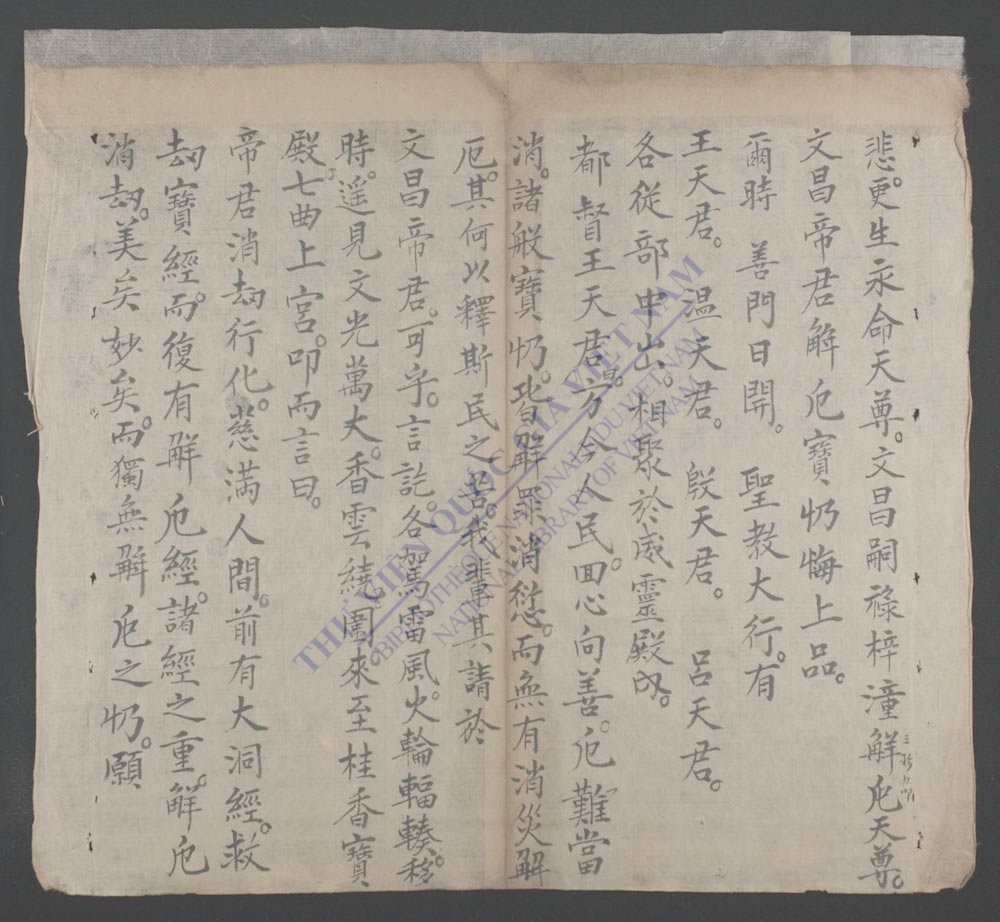 悲。更生永命天尊。文昌嗣祿梓潼觧厄天尊。三称九叩
文昌帝君觧厄寶忏悔上品。
爾時 善門日開。 聖教大行。有
王天君。 温天君。 殷天君。 呂天君。
各從部中出。相聚於威靈殿内。
都督王天君曰。方今人民。回心向善。厄難當
消。諸般寶忏。皆觧罪消愆。而無有消災觧
厄。其何以釋斯民之苦。我輩其請於
文昌帝君。可乎。言訖。各駕雷風火輪輻輳。移
時。遥見文光萬丈。香雲繞圍。來至桂香寶
殿。七曲上宮。叩而言曰。
帝君消刼行化。慈満人間。前有大洞經。救
刼寶經。而復有觧厄經。諸經之重。觧厄
消刼。美矣妙矣。而獨無觧厄之忏。願
THƯ VIỆN QUỐC GIA VIỆT NAM
BIBLIOTHÈQUE NATIONALE DU VIETNAM
NATIONAL LIBRARY OF VIETNAM